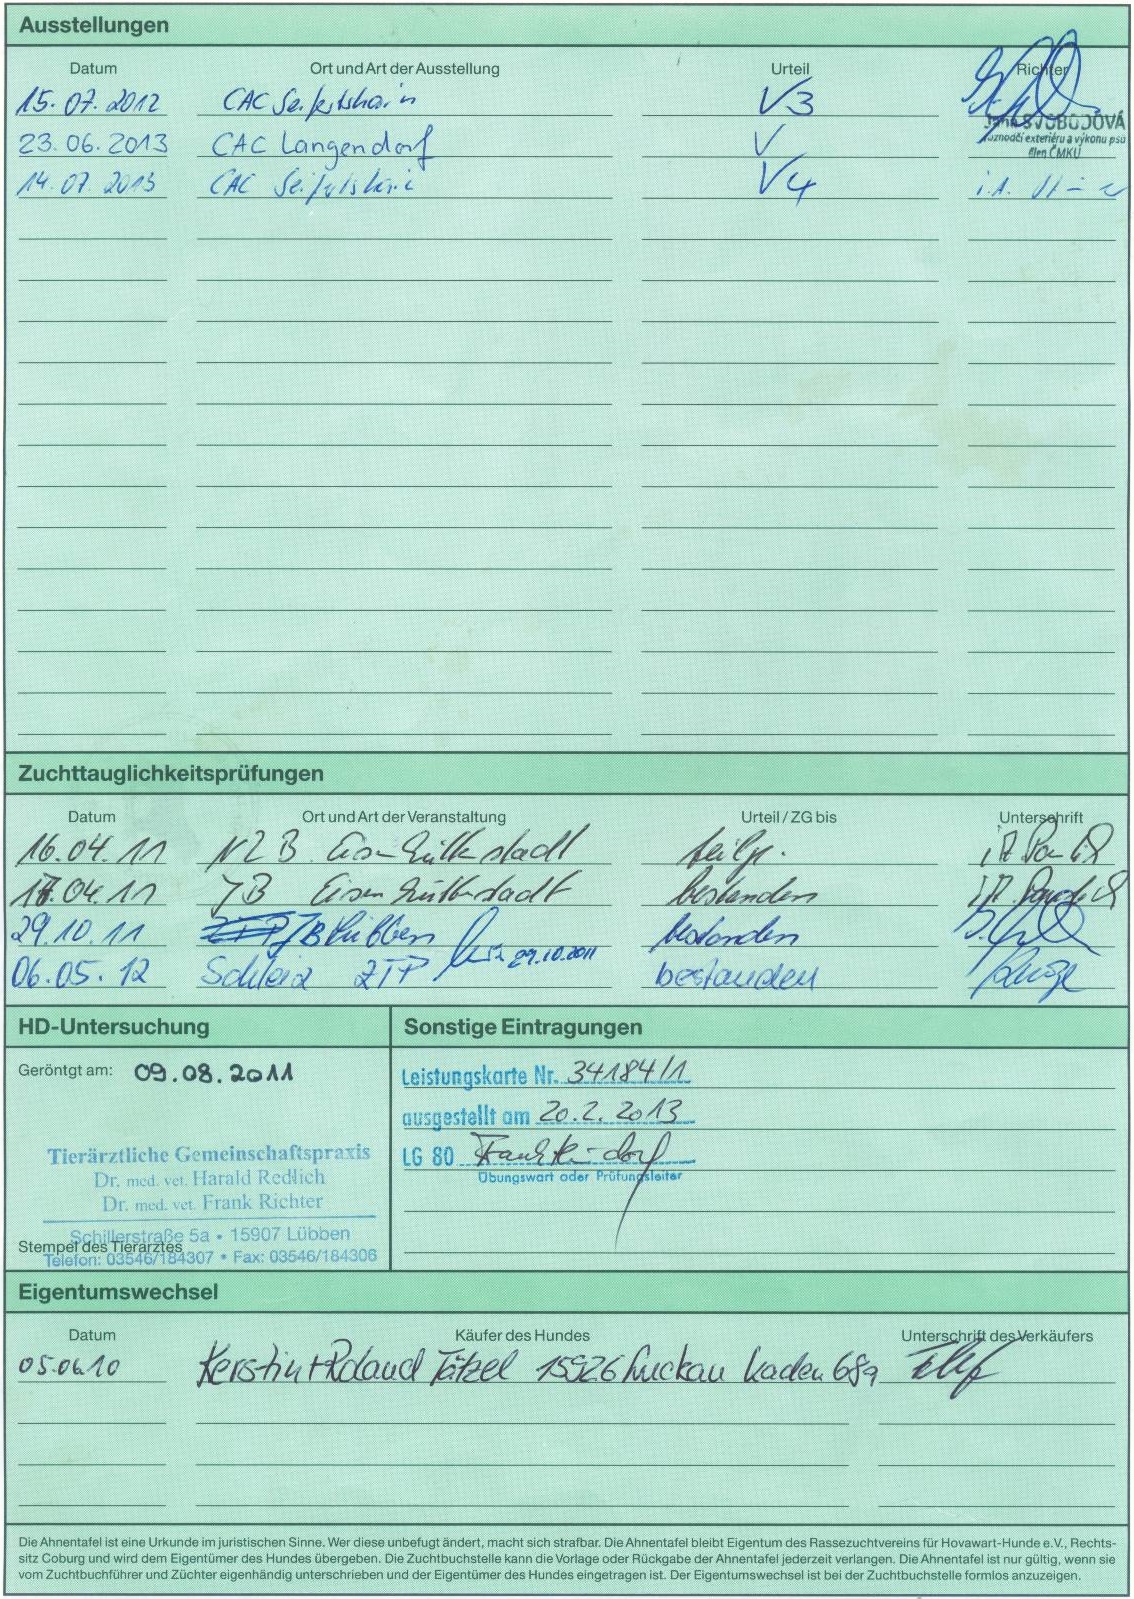 Ausstellungen
Datum Ort und Art der Ausstellung Urteil Richter
15.07.2012 CAC Seifertshain V3
Jana SVOBODOVÁ
23.06.2013 CAC Langendorf V
rozhodčí exteriéru a výkonu psů
člen ČMKU
14.07.2013 CAC Seifertshain V4 i.A.
Zuchttauglichkeitsprüfungen
Datum Ort und Art der Veranstaltung Urteil / ZG bis Unterschrift
16.04.11 NZB Eisenhüttenstadt teilg.
17.04.11 JB Eisenhüttenstadt bestanden
29.10.11 ZTP JB Lübben 29.10.2011 bestanden
06.05.12 Schleiz ZTP bestanden
HD-Untersuchung
Geröntgt am: 09.08.2011
Tierärztliche Gemeinschaftspraxis
Dr. med. vet. Harald Redlich
Dr. med. vet. Frank Richter
Schillerstraße 5a • 15907 Lübben
Stempel des Tierarztes
Telefon: 03546/184307 • Fax: 03546/184306
Sonstige Eintragungen
Leistungskarte Nr. 34184/1
ausgestellt am 20.2.2013
LG 80
Übungswart oder Prüfungsleiter
Eigentumswechsel
Datum Käufer des Hundes Unterschrift des Verkäufers
05.06.10 Kerstin + Roland Tätzel 15926 Luckau Kaden 68a
Die Ahnentafel ist eine Urkunde im juristischen Sinne. Wer diese unbefugt ändert, macht sich strafbar. Die Ahnentafel bleibt Eigentum des Rassezuchtvereins für Hovawart-Hunde e.V., Rechts-
sitz Coburg und wird dem Eigentümer des Hundes übergeben. Die Zuchtbuchstelle kann die Vorlage oder Rückgabe der Ahnentafel jederzeit verlangen. Die Ahnentafel ist nur gültig, wenn sie
vom Zuchtbuchführer und Züchter eigenhändig unterschrieben und der Eigentümer des Hundes eingetragen ist. Der Eigentumswechsel ist bei der Zuchtbuchstelle formlos anzuzeigen.